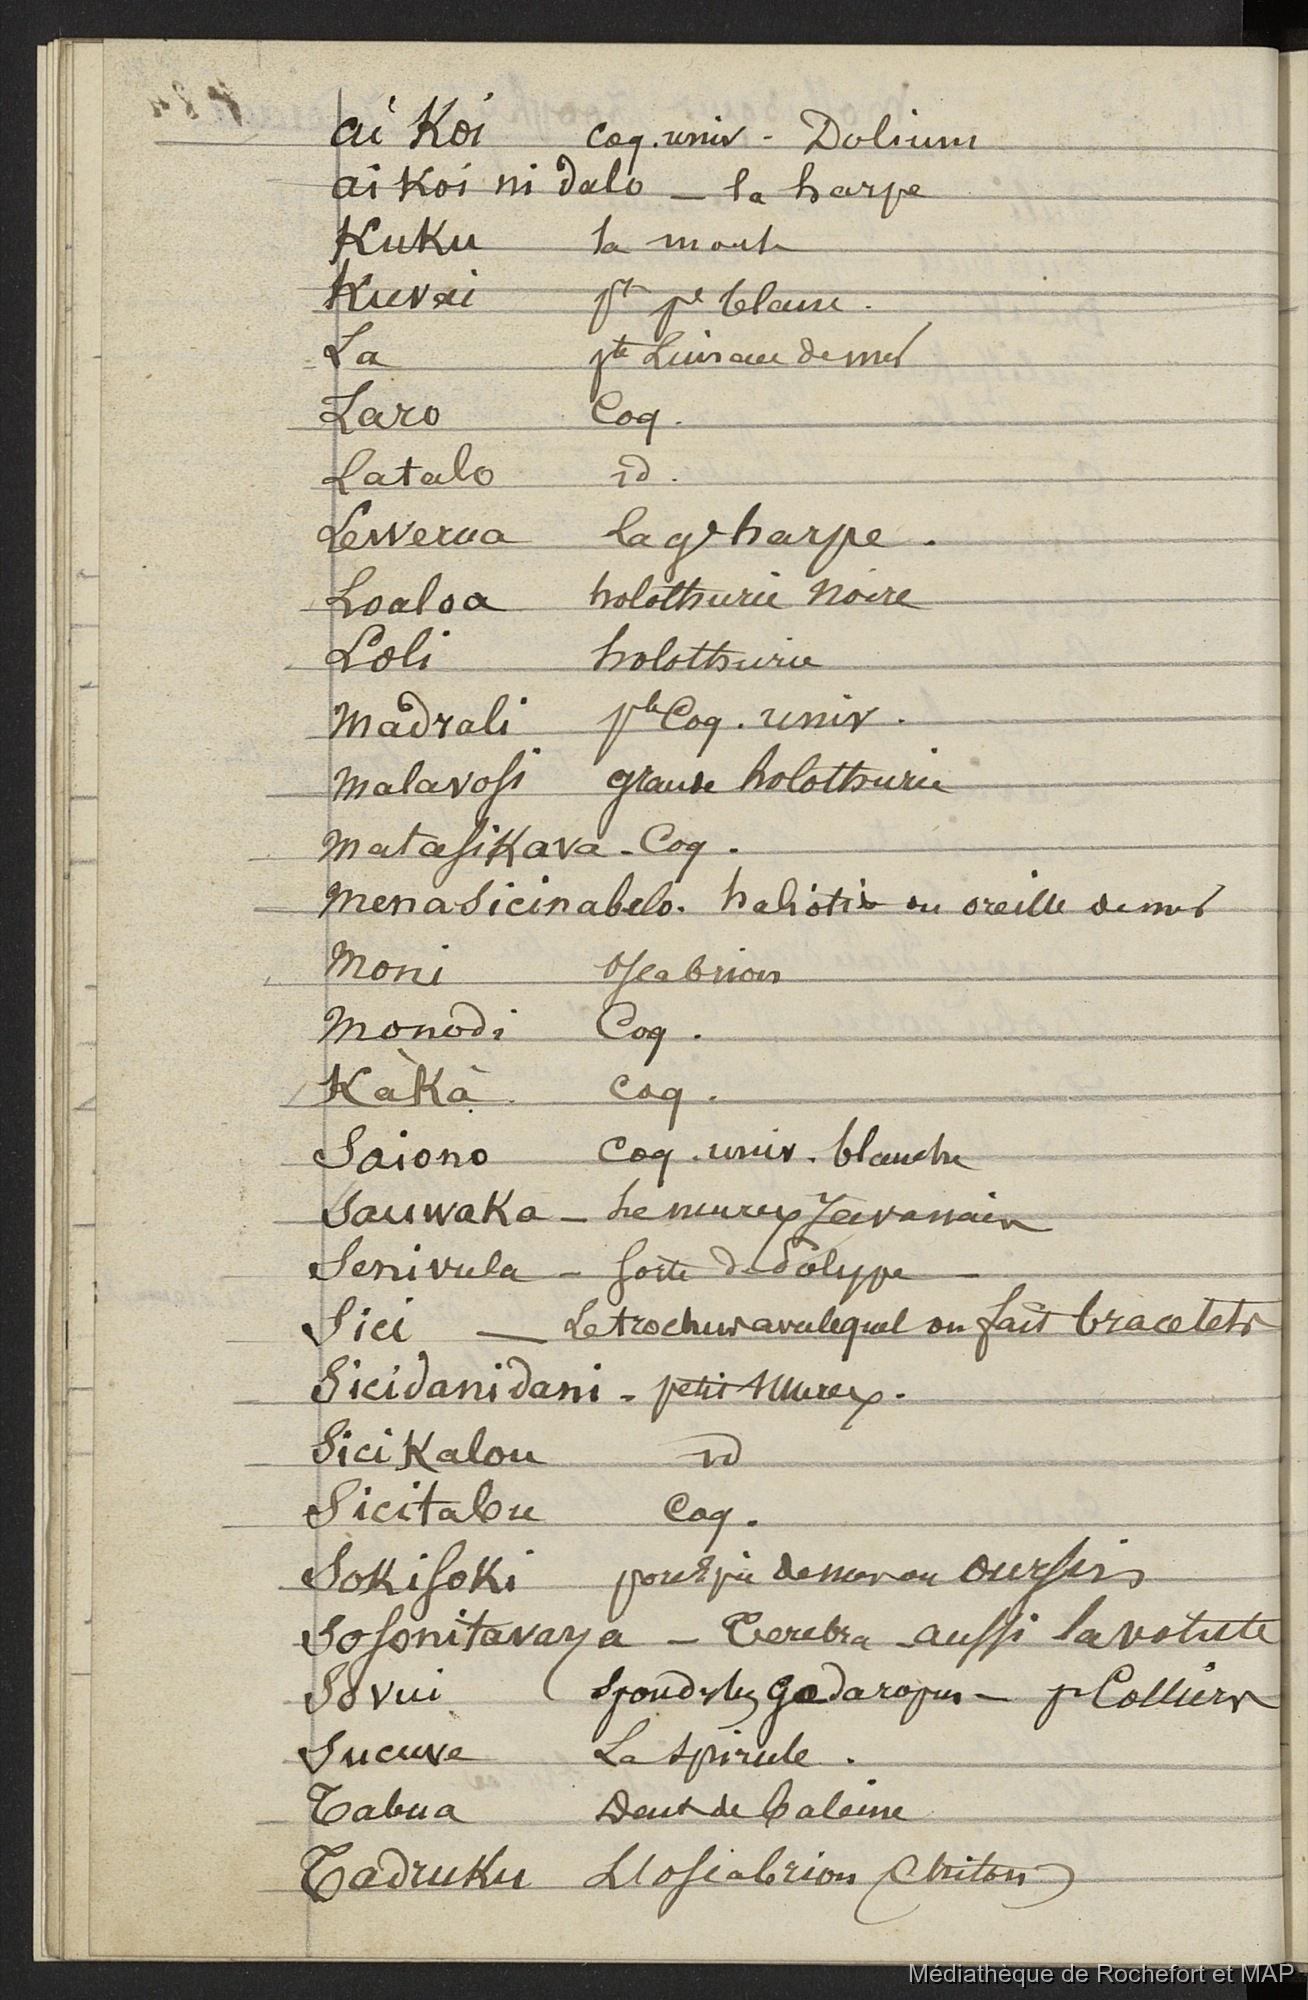 ai Koi coq. univ - Dolium
ai Koi ni dalo — la harpe
Kuku la moule
Kuvui pt pe blanc.
La pte Linseau de mer
Laro Coq.
Latalo id.
Lewerua La gde harpe.
Loaloa holothurie noire
Loli holothurie
Madrali pte Coq. univ.
Malavosi grande holothurie
Matasikava - Coq.
Menasicinabelo. haliotis ou oreille de mer
Moni oscabrion
Monodi Coq.
Kàkà coq.
Saiono Coq. univ. blanche
Sauwaka — Le murex
Senivula — Sorte de Polype —
Sici — Le trochus avec lequel on fait bracelets
Sicidanidani - petit Murex.
Sicikalou id
Sicitabu Coq.
Sokisoki de mer ou Oursin
Sosonitavaya — Terebra aussi la volute
Sovui Spondylus Gaedaropus — pr Colliers
Sucuva La spirule.
Tabua Dent de baleine
Tadruku L'oscabrion (Chiton)
Médiathèque de Rochefort et MAP